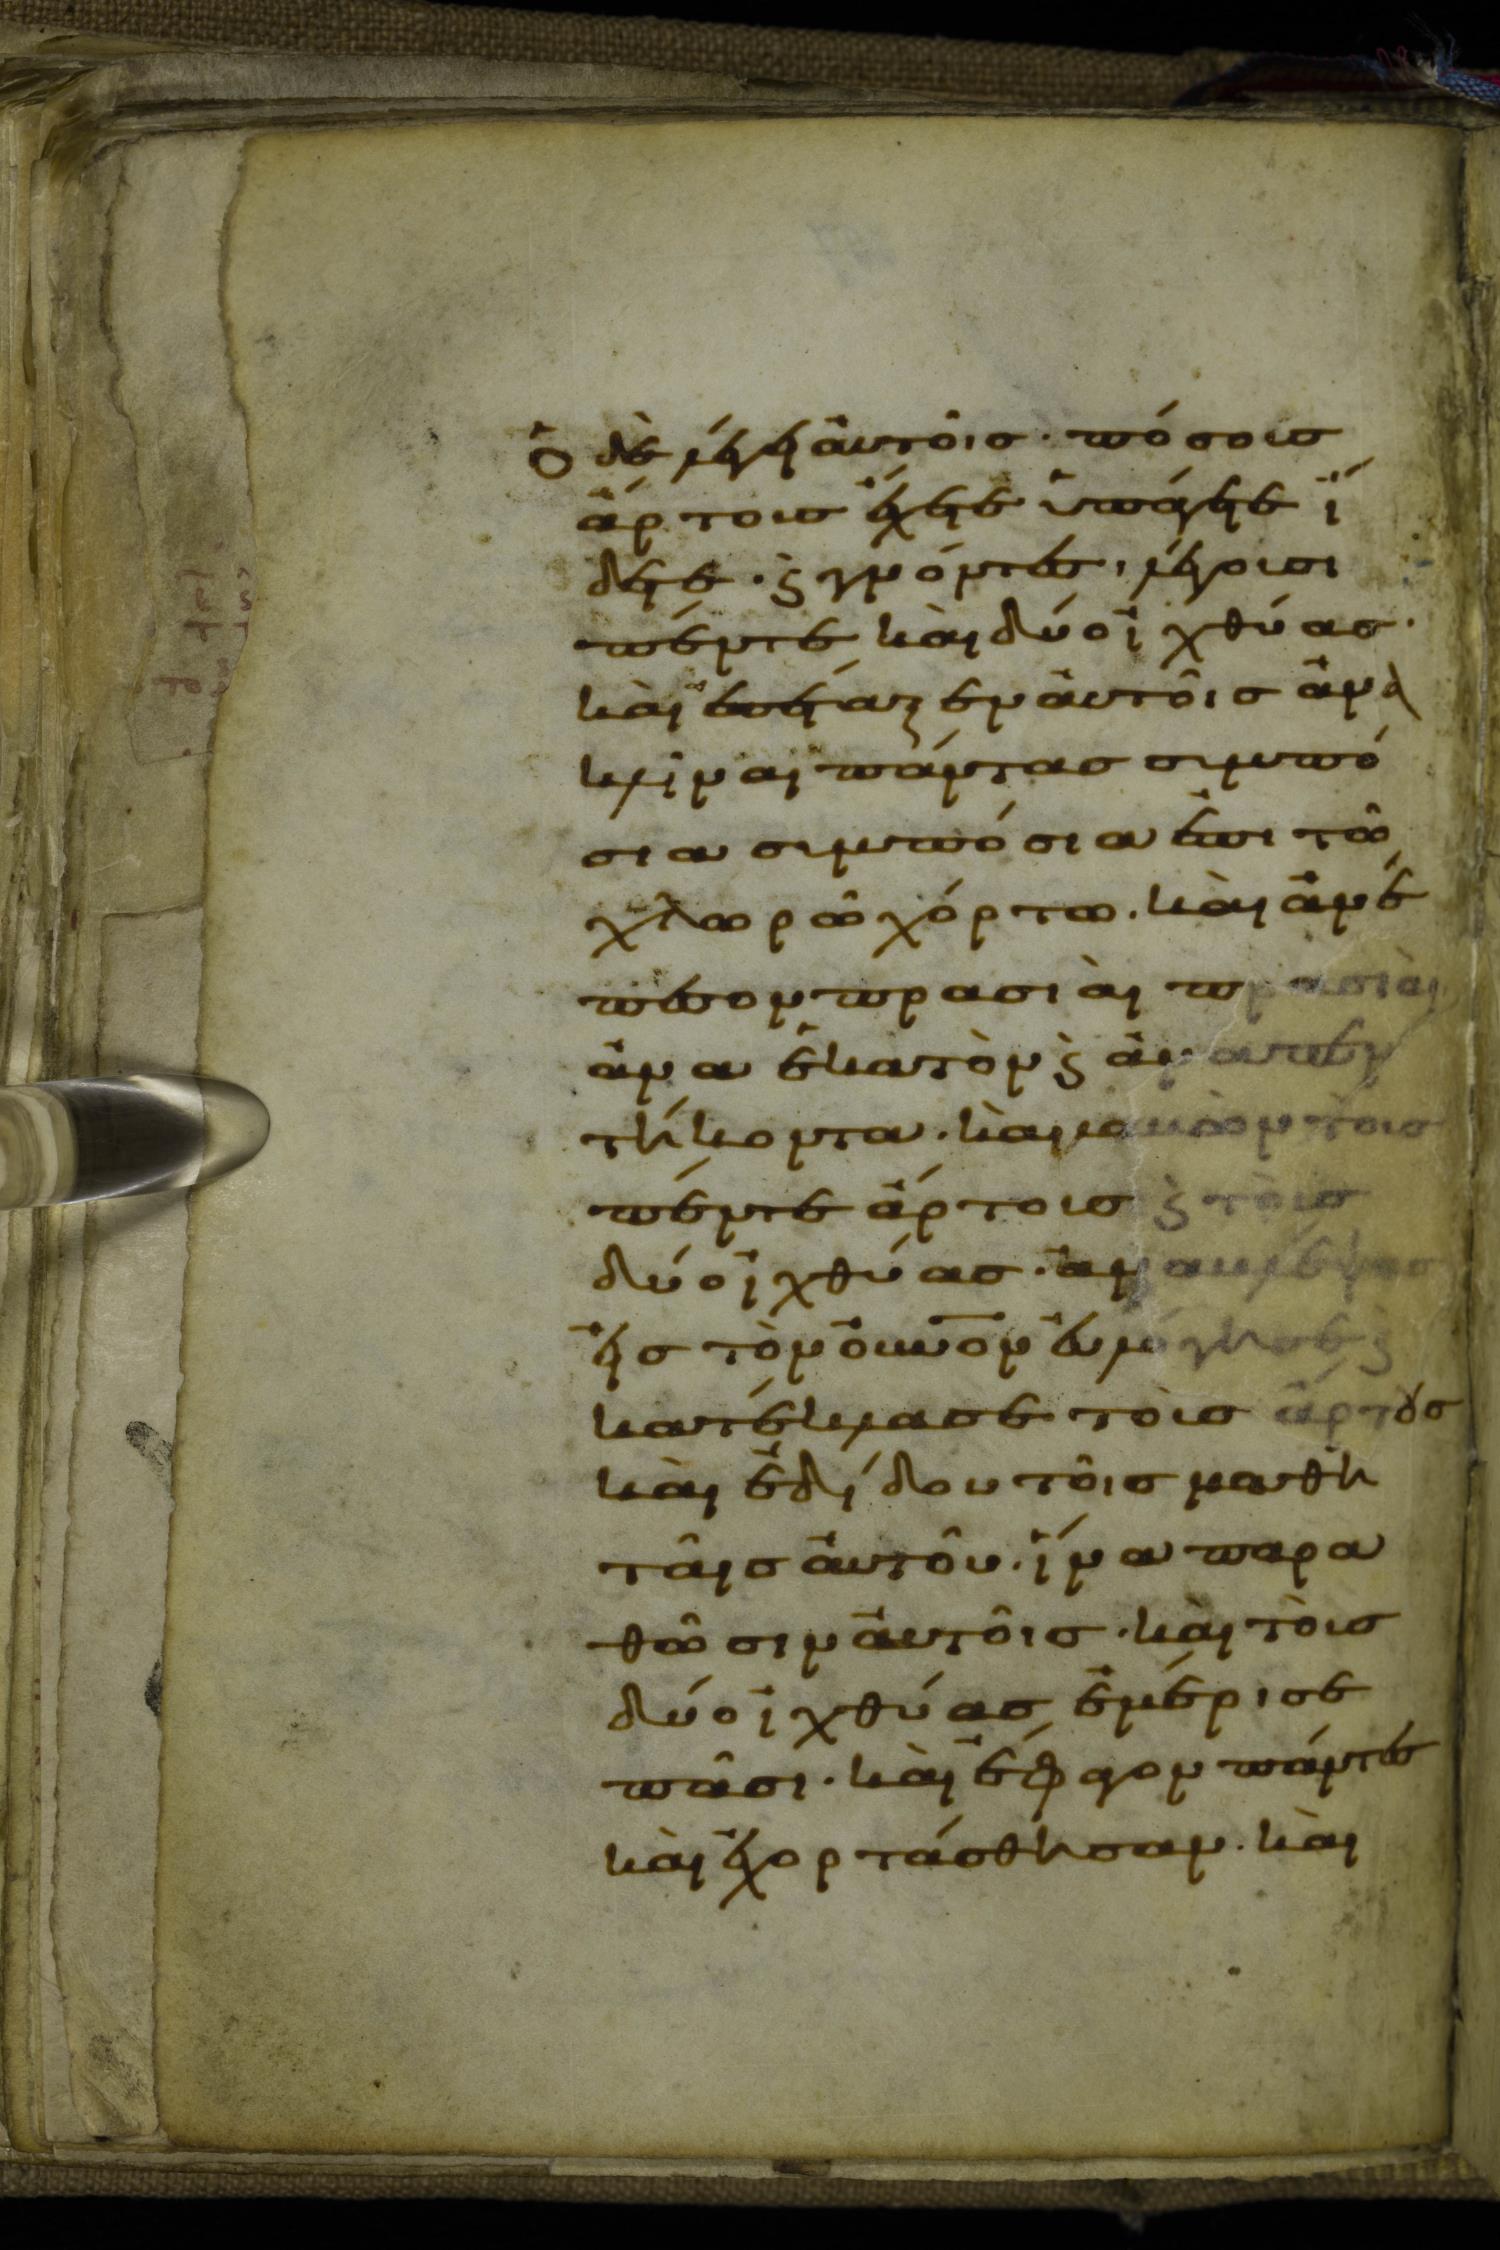 Ὁ δὲ λέγει αὐτοῖς· πόσους
ἄρτους ἔχετε ὑπάγετε ἴ
δετε· ϗ γνόντες, λέγουσι
πέντε καὶ δύο ἰχθύας·
καὶ ἐπέταξεν αὐτοῖς ἀνα
κλῖναι πάντας συμπό
σια συμπόσια ἐπι τῶ
χλωρῶ χόρτω. καὶ ἀνέ
πεσον πρασιὰι πρασιὰι
ἀνα ἑκατὸν ϗ ἀνα πεν
τήκοντα. καὶ λαβὼν τοὺς
πέντε ἄρτους ϗ τοὺς
δύο ἰχθύας· ἀναβλέψας
εἰς τὸν οὐν̅ο̅ν εὐλόγησε ϗ
κατέκλασε τοὺς ἄρτους
καὶ ἐδίδου τοῖς μαθη
ταῖς αὐτοῦ. ἵνα παρα
θῶσιν αὐτοῖς· καὶ τοὺς
δύο ἰχθύας ἐμέρισε
πᾶσι. καὶ ἔφαγον πάντες
καὶ ἐχορτάσθησαν. καὶ